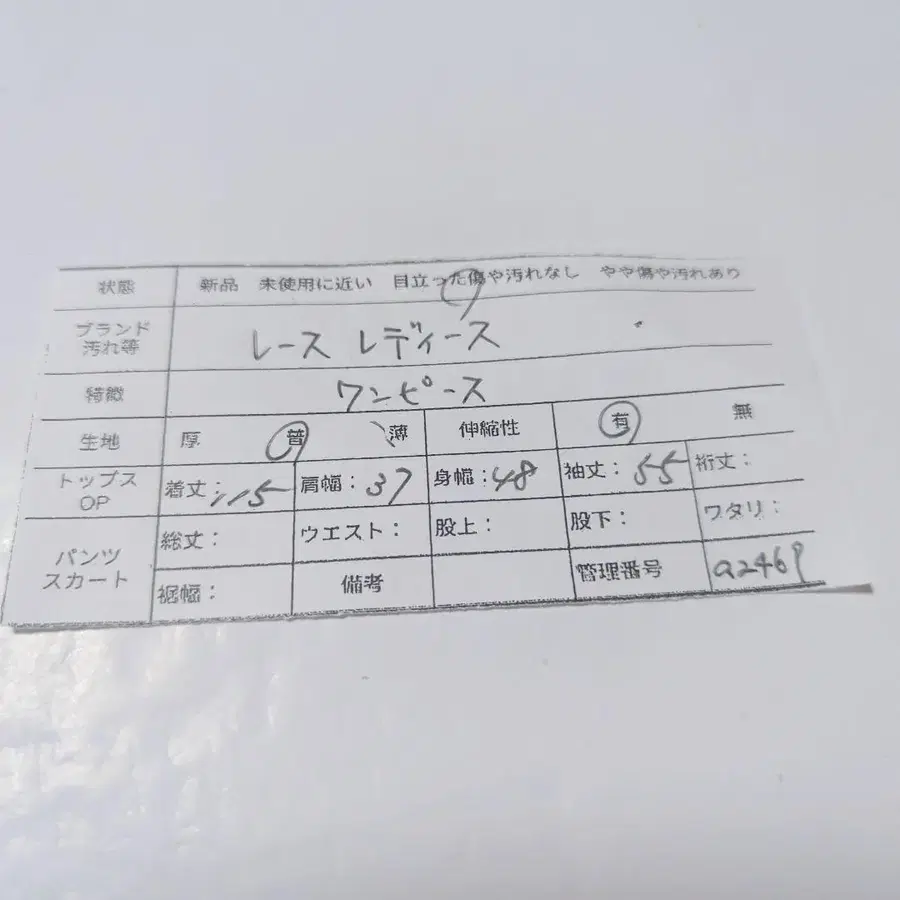 状態 新品 未使用に近い 目立った傷や汚れなし やや傷や汚れあり
ブランド 汚れ等 レース レディース
特徴 ワンピース
生地 厚 普 薄 伸縮性 有 無
トップス OP 着丈：115 肩幅：37 身幅：48 袖丈：55 裄丈：
パンツ スカート 総丈： ウエスト： 股上： 股下： ワタリ：
裾幅： 備考 管理番号 a2469